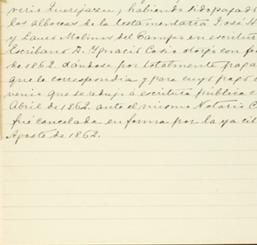 habiendo sido pagad
los albaceas de la testamentaria José H
y Louis Molinos del Campo en escritura
Escribano D. Ygnacio Cosio otorgó con fe
de 1862. dándose por totalmente paga
que le correspondia y para cuyo pago
venio que se redujo á escritura pública
Abril de 1862. ante el mismo Notario C
fué cancelada en forma por la ya ci
Agosto de 1862.